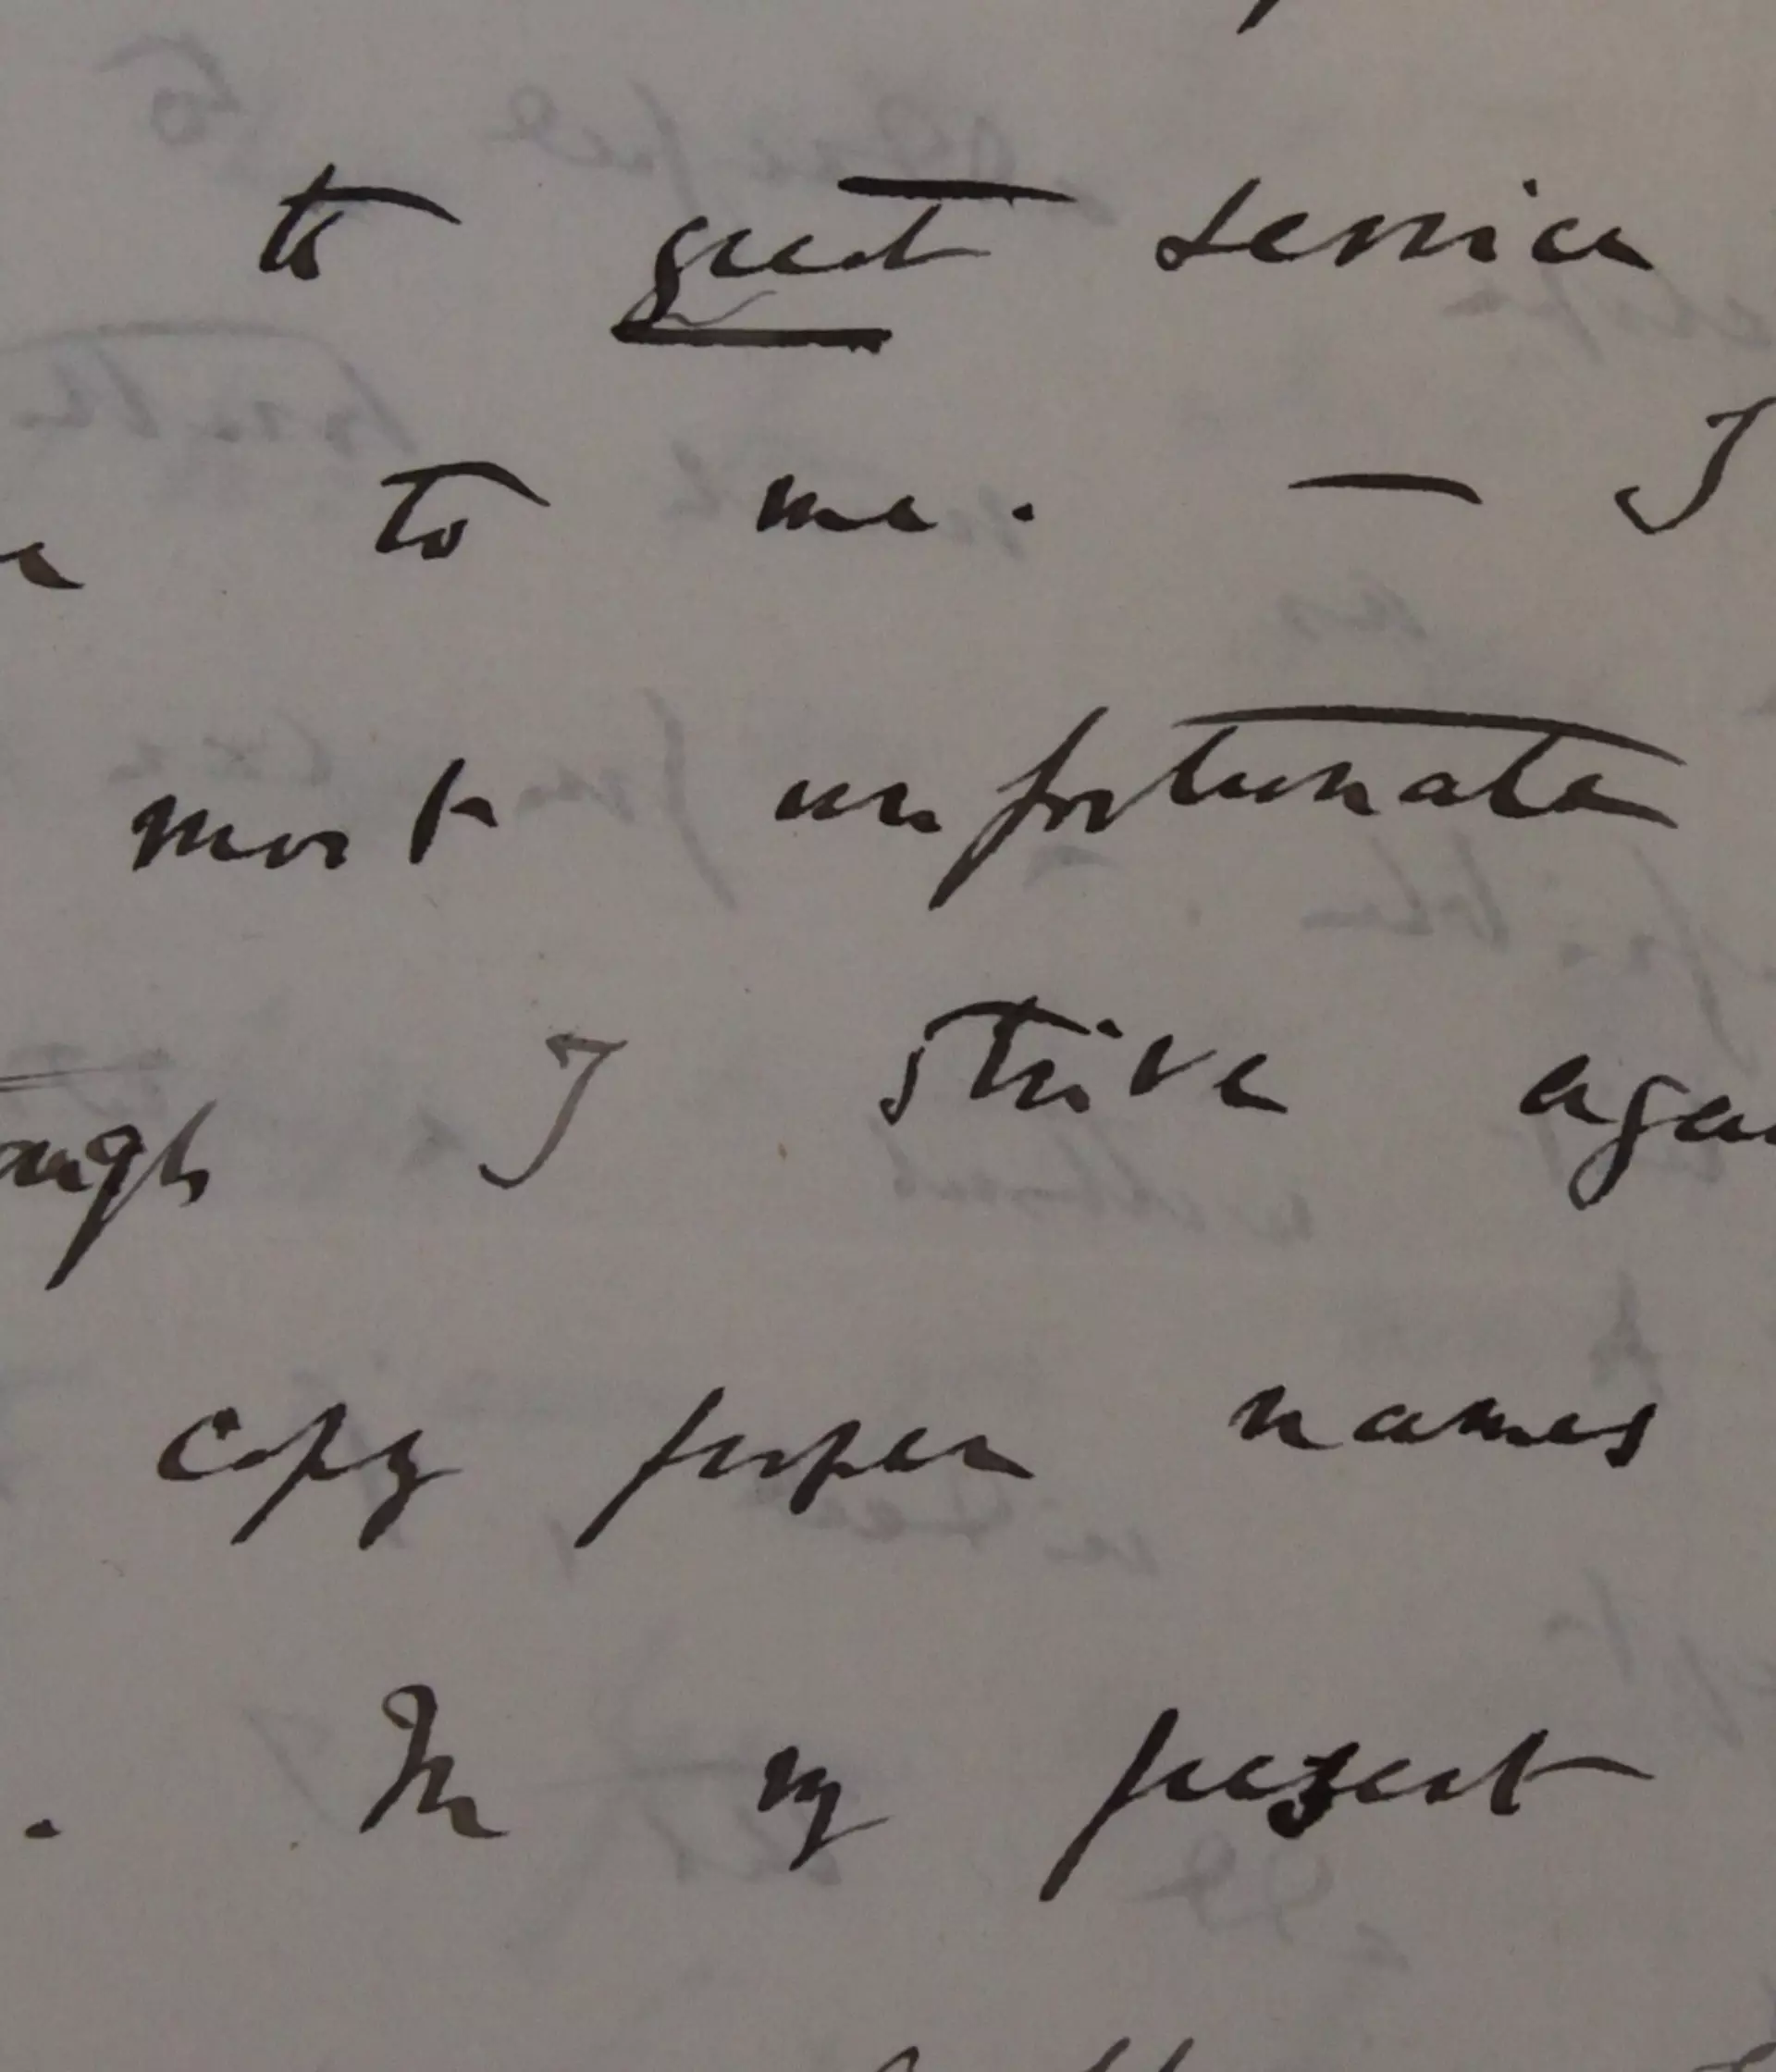 to great service
to me. — I
most unfortunate
ough I strive aga
copy proper names
. In my present